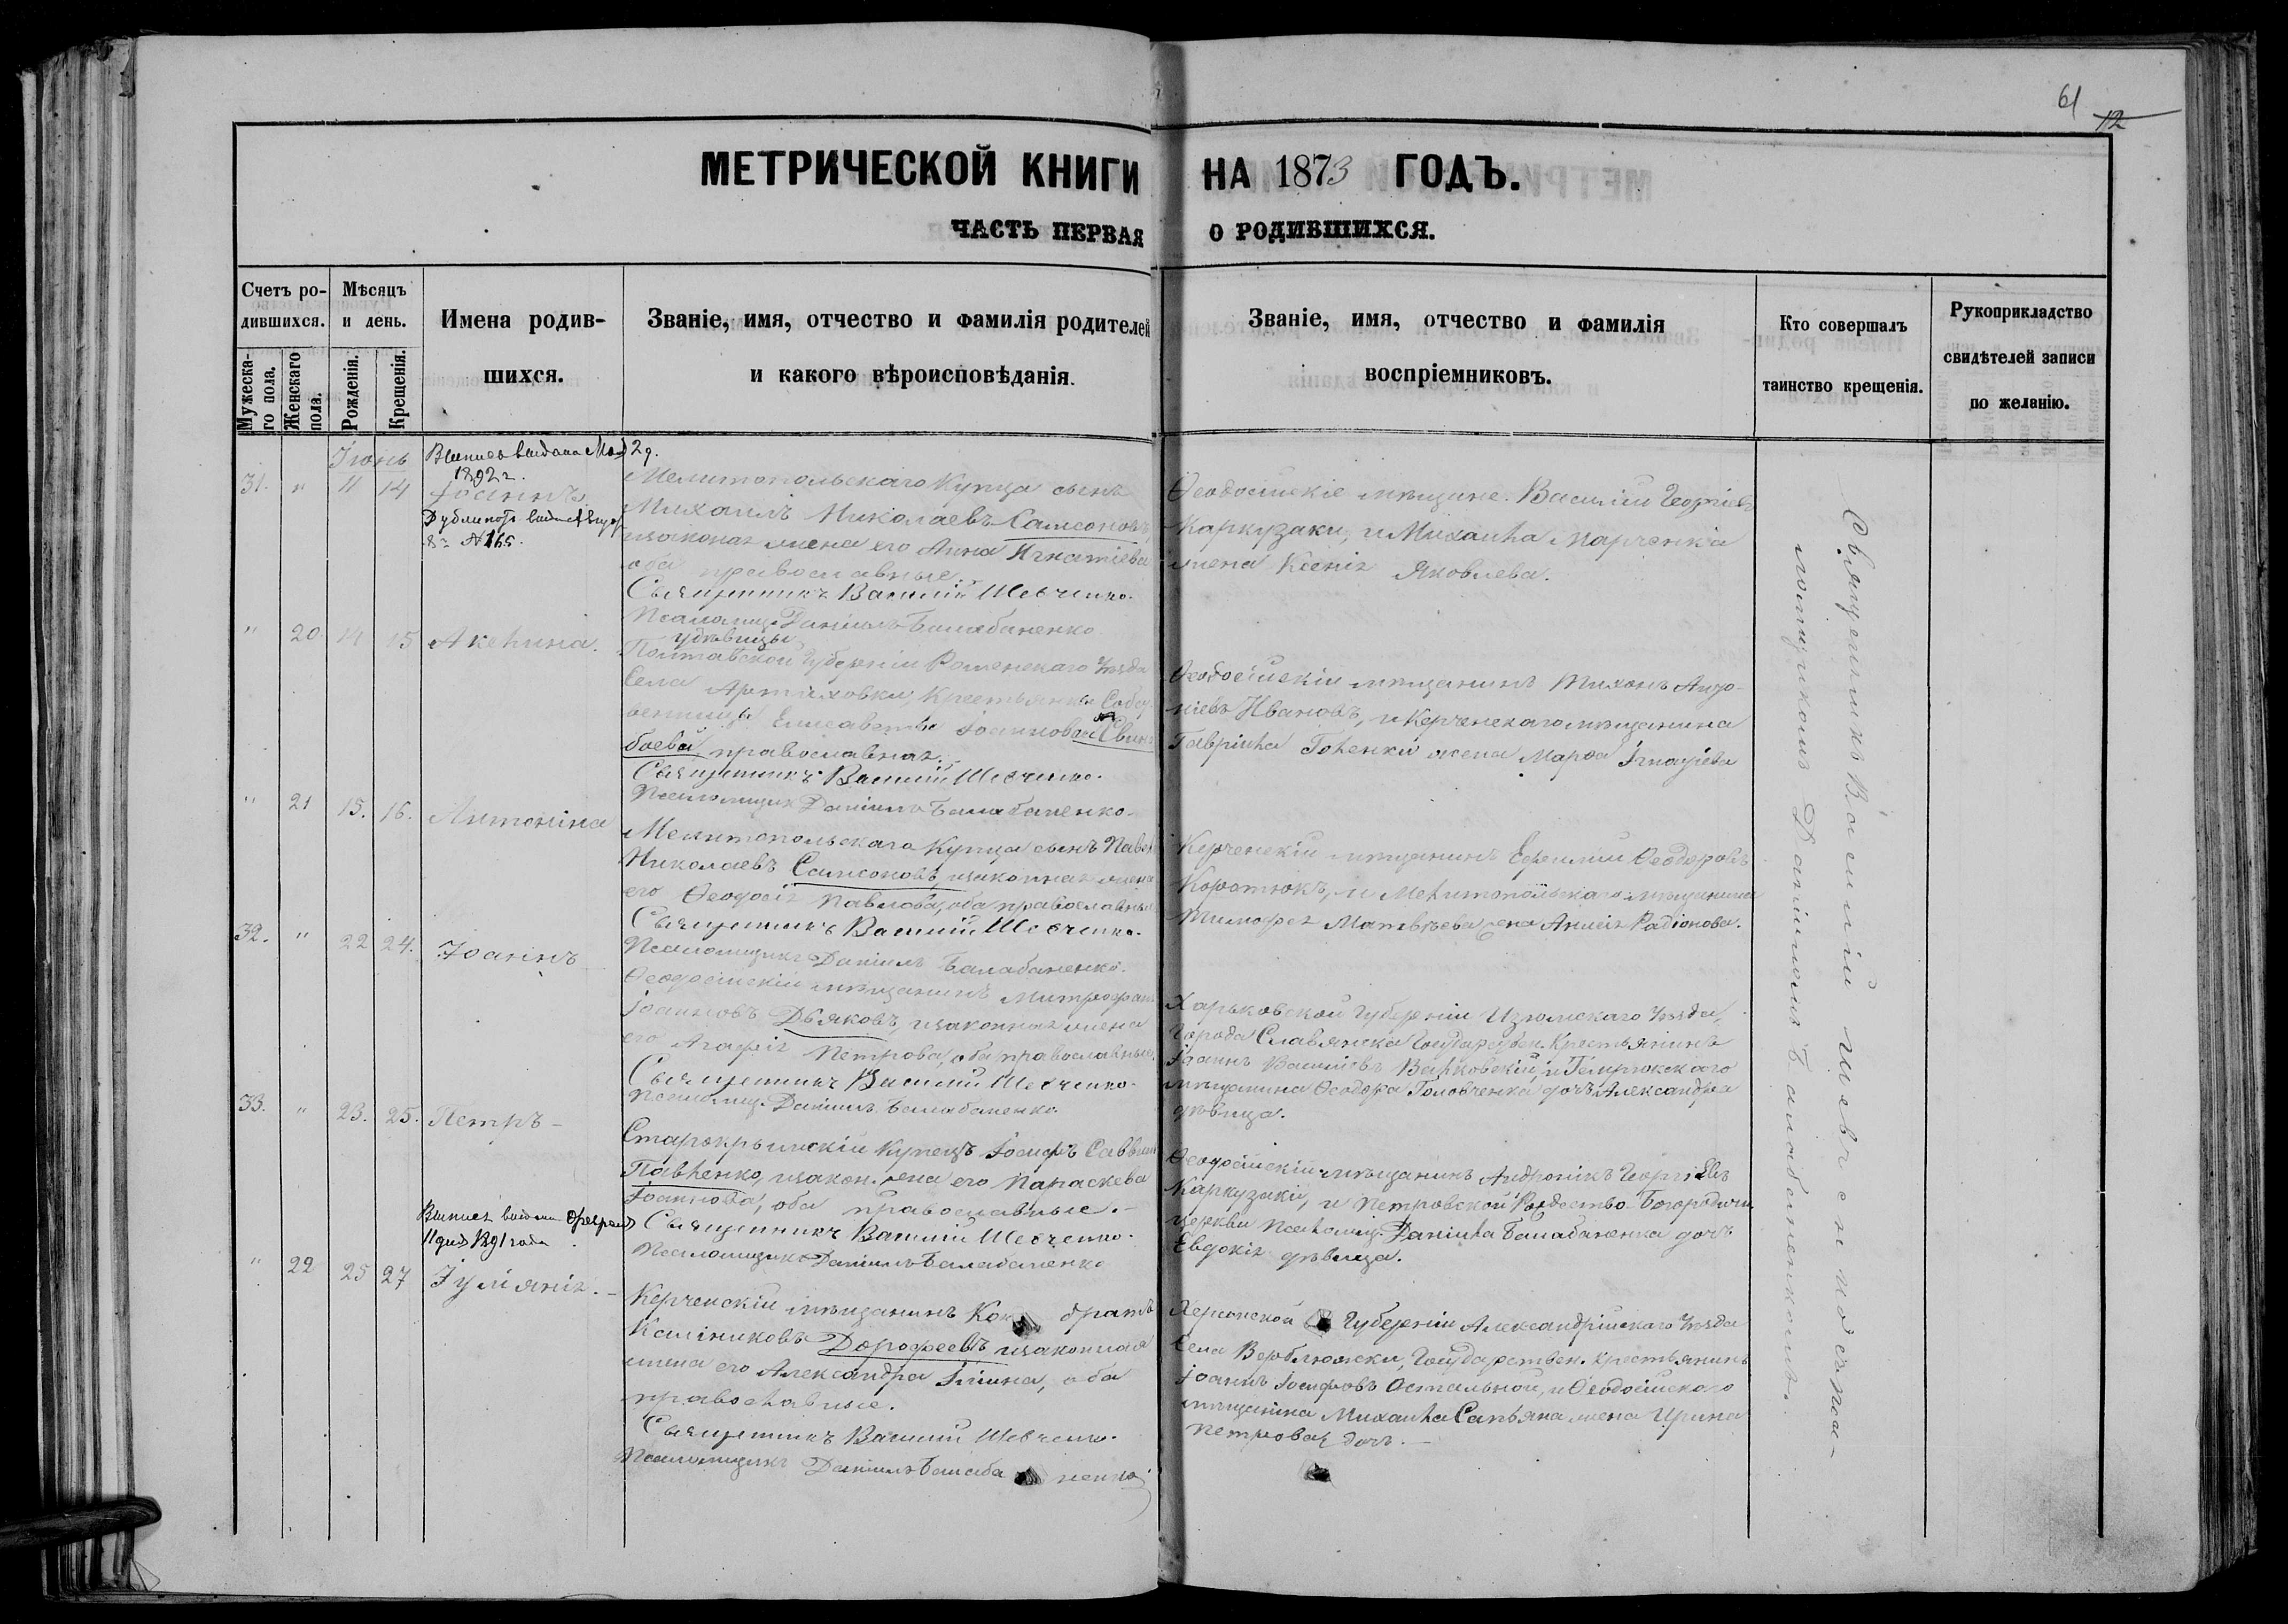 61
12
МЕТРИЧЕСКОЙ КНИГИ НА 1873 ГОДЪ.
ЧАСТЬ ПЕРВАЯ О РОДИВШИХСЯ.
Счетъ ро-
дившихся.
Мужеска-
го пола.
Женскаго
пола.
Мѣсяцъ
и день.
Рожденія.
Крещенія.
Имена родив-
шихся.
Званіе, имя, отчество и фамилія родителей
и какого вѣроисповѣданія.
Званіе, имя, отчество и фамилія
воспріемниковъ.
Кто совершалъ
таинство крещенія.
Рукоприкладство
свидѣтелей записи
по желанію.
Іюнь
Выпись выдана 2 д.
1892 г.
31. " 11 14 Іоаннъ
№ 165.
Мелитопольскаго Купца сынъ
Михаилъ Николаевъ Самсоновъ,
изаконая жена его Анна Игнатіева
оба православные.
Священникъ Василій Шевченко.
Псаломщ. Даніилъ Балабаненко
Ѳеодосійскіе мѣщане Василій Георгіевъ
Каркузаки, и Михаила Марченка
жена Ксенія Яковлева.
" 20 14 15 Акелина.
удѣвицы
Полтавской Губерніи Роменскаго Уѣзда
Села Артюховки, Крестьянки Собст
венницы Елисаветы Іоанновой Свин
боевой православная.
Священникъ Василій Шевченко.
Псаломщикъ Даніилъ Балабаненко.
Ѳеодосійскій мѣщанинъ Тихонъ Анто-
ніевъ Ивановъ, и Керченскаго мѣщанина
Гавріила Голенки жена Марѳа Игнатіева
" 21 15. 16. Антонина
Мелитопольскаго Купца сынъ Павелъ
Николаевъ Самсоновъ, изаконная жена
его Ѳеодосія Павлова, оба православные
Священникъ Василій Шевченко.
Псаломщикъ Даніилъ Балабаненко.
Керченскій мѣщанинъ Ефимій Ѳеодоровъ
Коротюкъ, и Мелитопольскаго мѣщанина
Тимофея Матвѣева жена Анисія Радіонова.
32. " 22 24. Іоаннъ
Ѳеодосійскій мѣщанинъ Митрофанъ
Іоанновъ Дьяковъ, изаконная жена
его Агафія Петрова, оба православные.
Священникъ Василій Шевченко.
Псаломщ. Даніилъ Балабаненко.
Харьковской Губерніи Изюмскаго Уѣзда,
Города Славянска Государствен. Крестьянинъ
Іоаннъ Васильевъ Варковскій, и Темрюкскаго
мѣщанина Ѳеодора Головченка дочь Александра
дѣвица.
33. " 23. 25. Петръ -
Старокрымскій Купецъ Іосифъ Саввинъ
Павленко, изакон. жена его Параскева
Іоаннова, оба православные. -
Священникъ Василій Шевченко.
Псаломщикъ Даніилъ Балабаненко
Ѳеодосійскій мѣщанинъ Андроникъ Георгіевъ
Каркузакі, и Петровской Рождество-Богородичн
церкви Псаломщ. Даніила Балабаненка дочь
Евдокія дѣвица.
Выпись выдана Февраля
11 дня 1891 года
" 22 25 27 Іуліянія. -
Керченскій мѣщанинъ Кон дратъ
Калиниковъ Дорофеевъ изаконная
жена его Александра Ильина, оба
православные.
Священникъ Василій Шевченко.
Псаломщикъ Даніилъ Балаба ненко
Херсонской Губерніи Александрійскаго Уѣзда
Села Верблюжски, Государствен. Крестьянинъ
Іоаннъ Іосифовъ Остальной, и Ѳеодосійскаго
мѣщанина Михаила Сапьяна жена Ирина
Петрова дочь. -
Священникъ Василій Шевченко съ пса-
ломщикомъ Даніиломъ Балабаненкомъ.